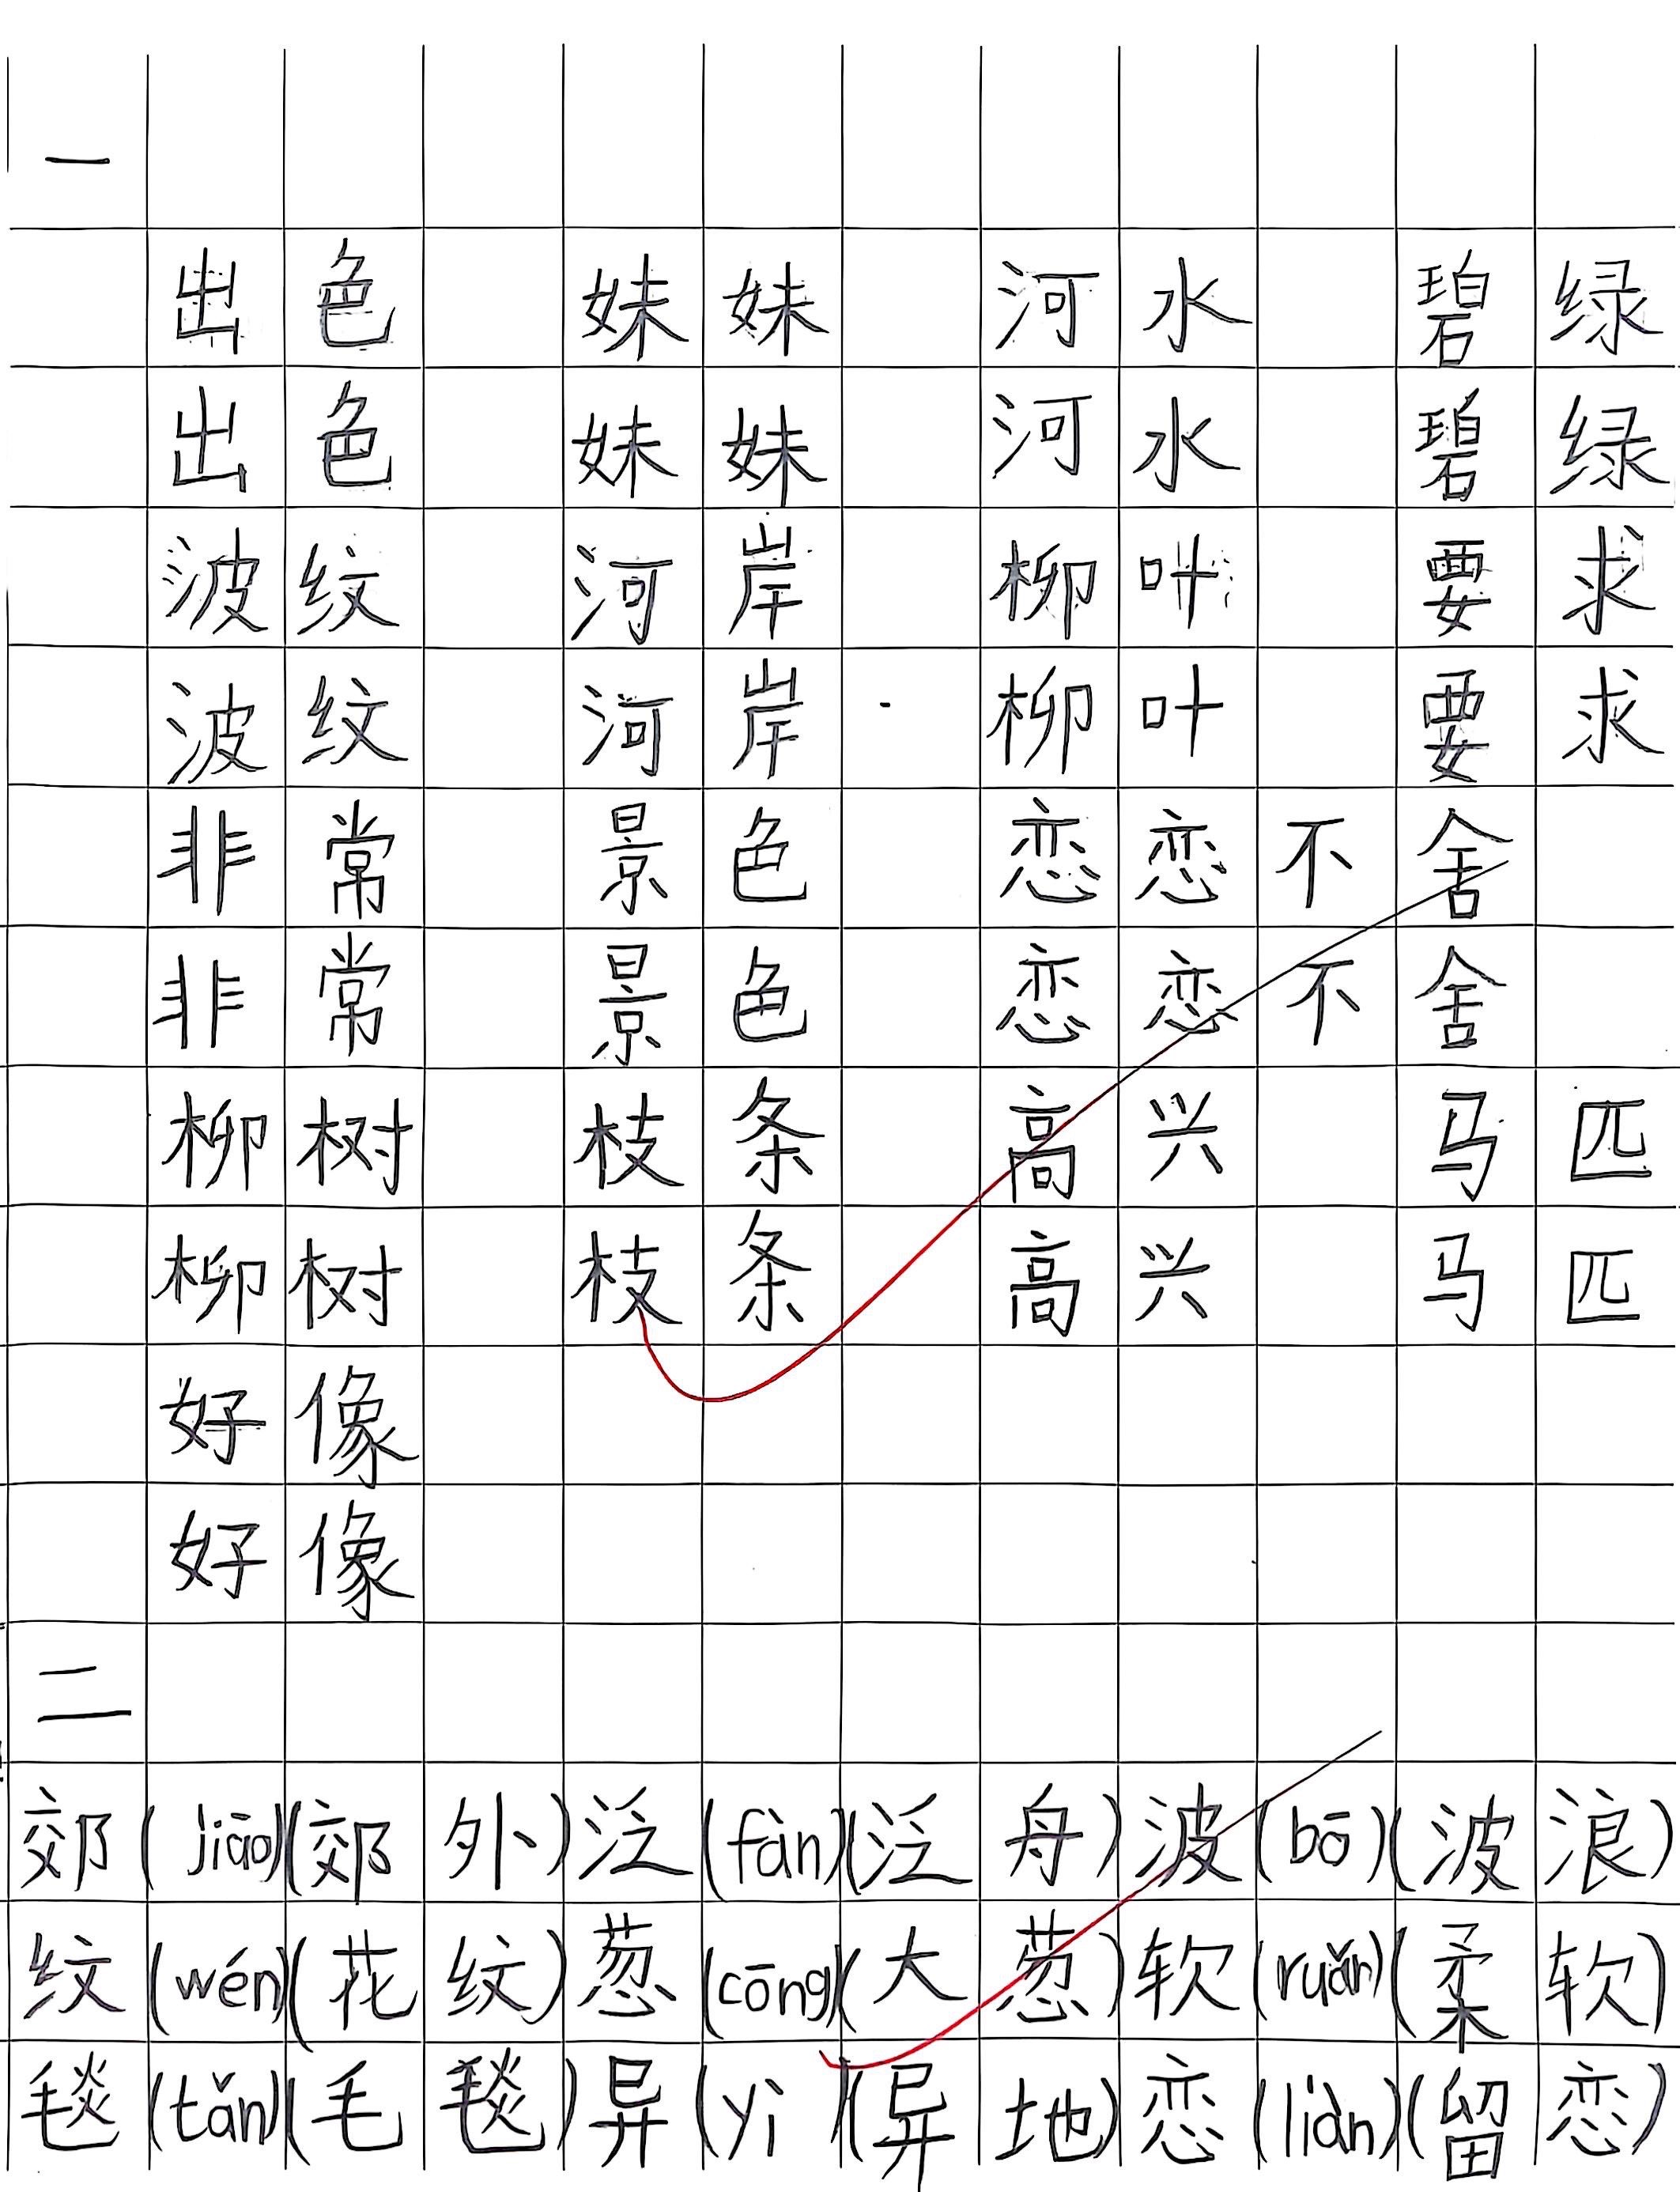 一
出色 妹妹 河水 碧绿
出色 妹妹 河水 碧绿
波纹 河岸 柳叶 要求
波纹 河岸 柳叶 要求
非常 景色 恋恋不舍
非常 景色 恋恋不舍
柳树 枝条 高兴 马匹
柳树 枝条 高兴 马匹
好像
好像
二
郊(jiāo)(郊外)泛(fàn)(泛舟)波(bō)(波浪)
纹(wén)(花纹)葱(cōng)(大葱)软(ruǎn)(柔软)
毯(tǎn)(毛毯)异(yì)(异地)恋(liàn)(留恋)